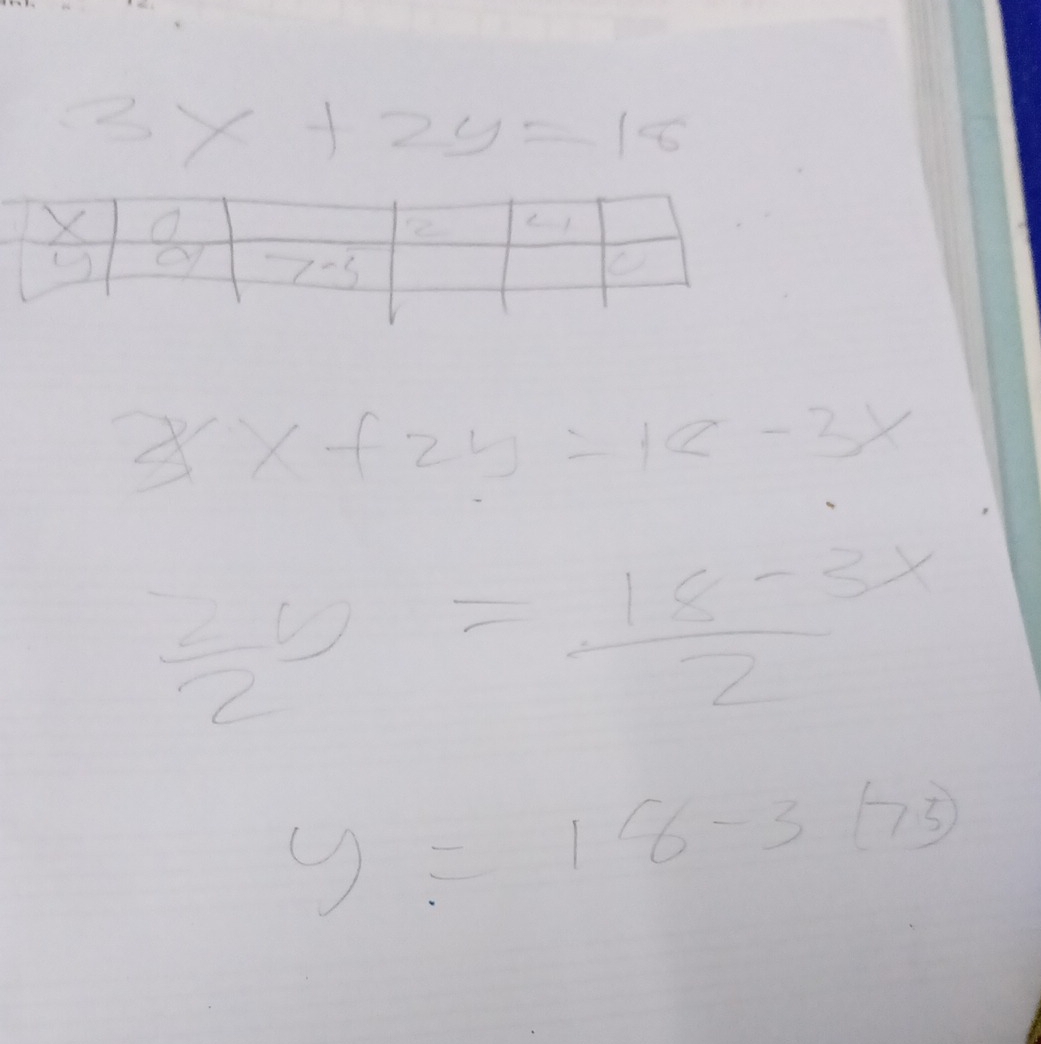 3x + 2y = 18
x 0 2 4
y 9 7.5 0
3x + 2y = 18 - 3x
2y/2 = 18 - 3x/2
y = 18 - 3 (7.5)